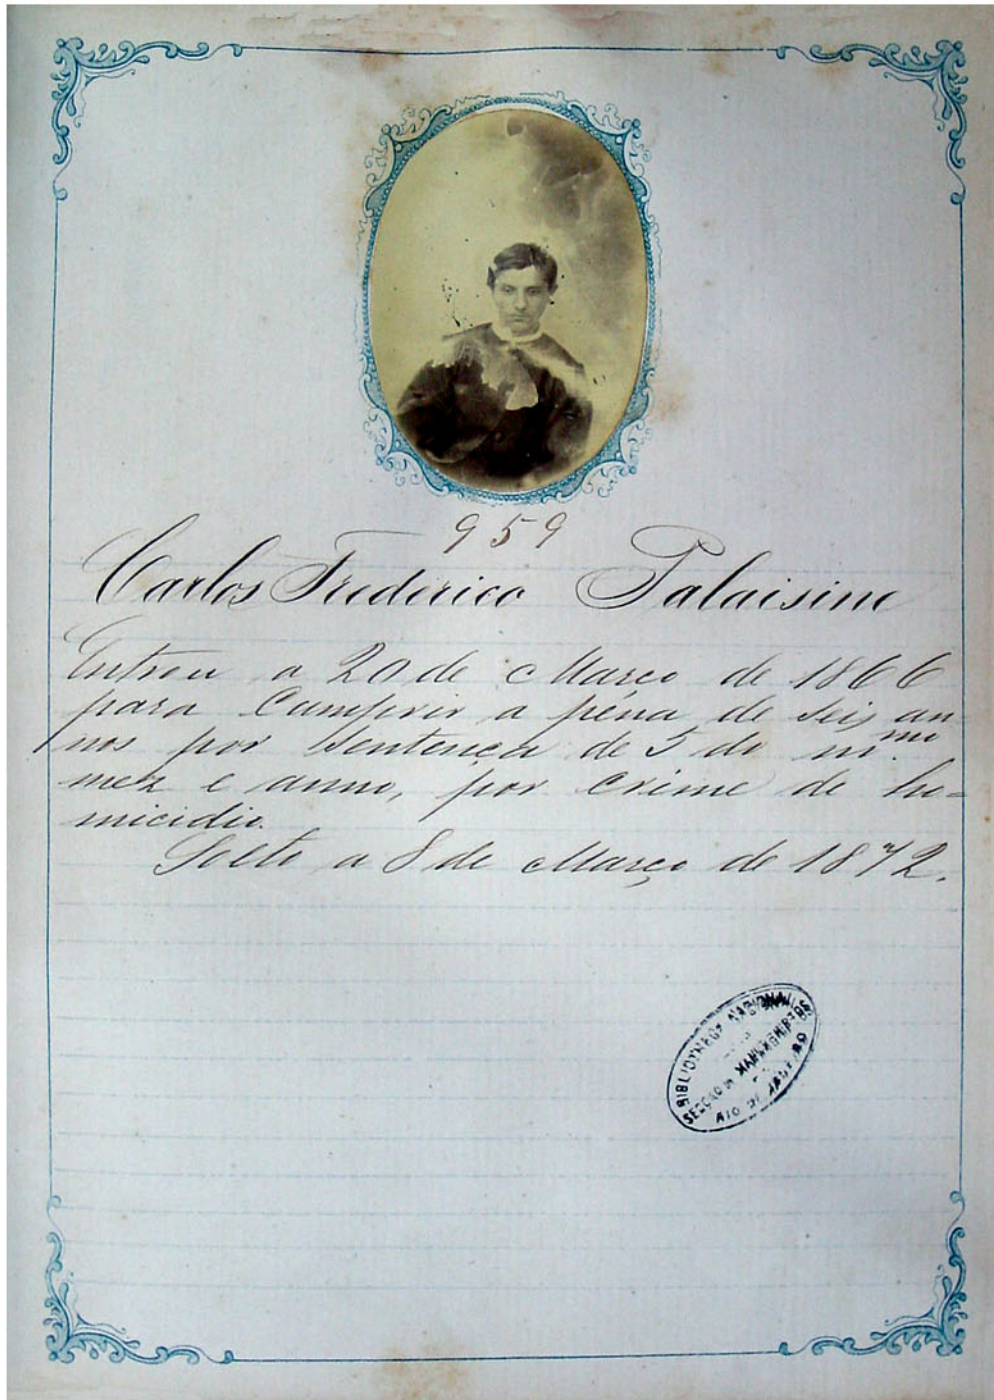 959
Carlos Frederico Palaisine
Entrou a 20 de Março de 1866
para Cumprir a pena de seis an-
nos por Sentença de 5 do m.mo
mez e anno, por crime de ho=
micidio.
Solto a 8 de Março de 1872.
BIBLIOTHECA NACIONAL
SECÇÃO DE MANUSCRIPTOS
RIO DE JANEIRO